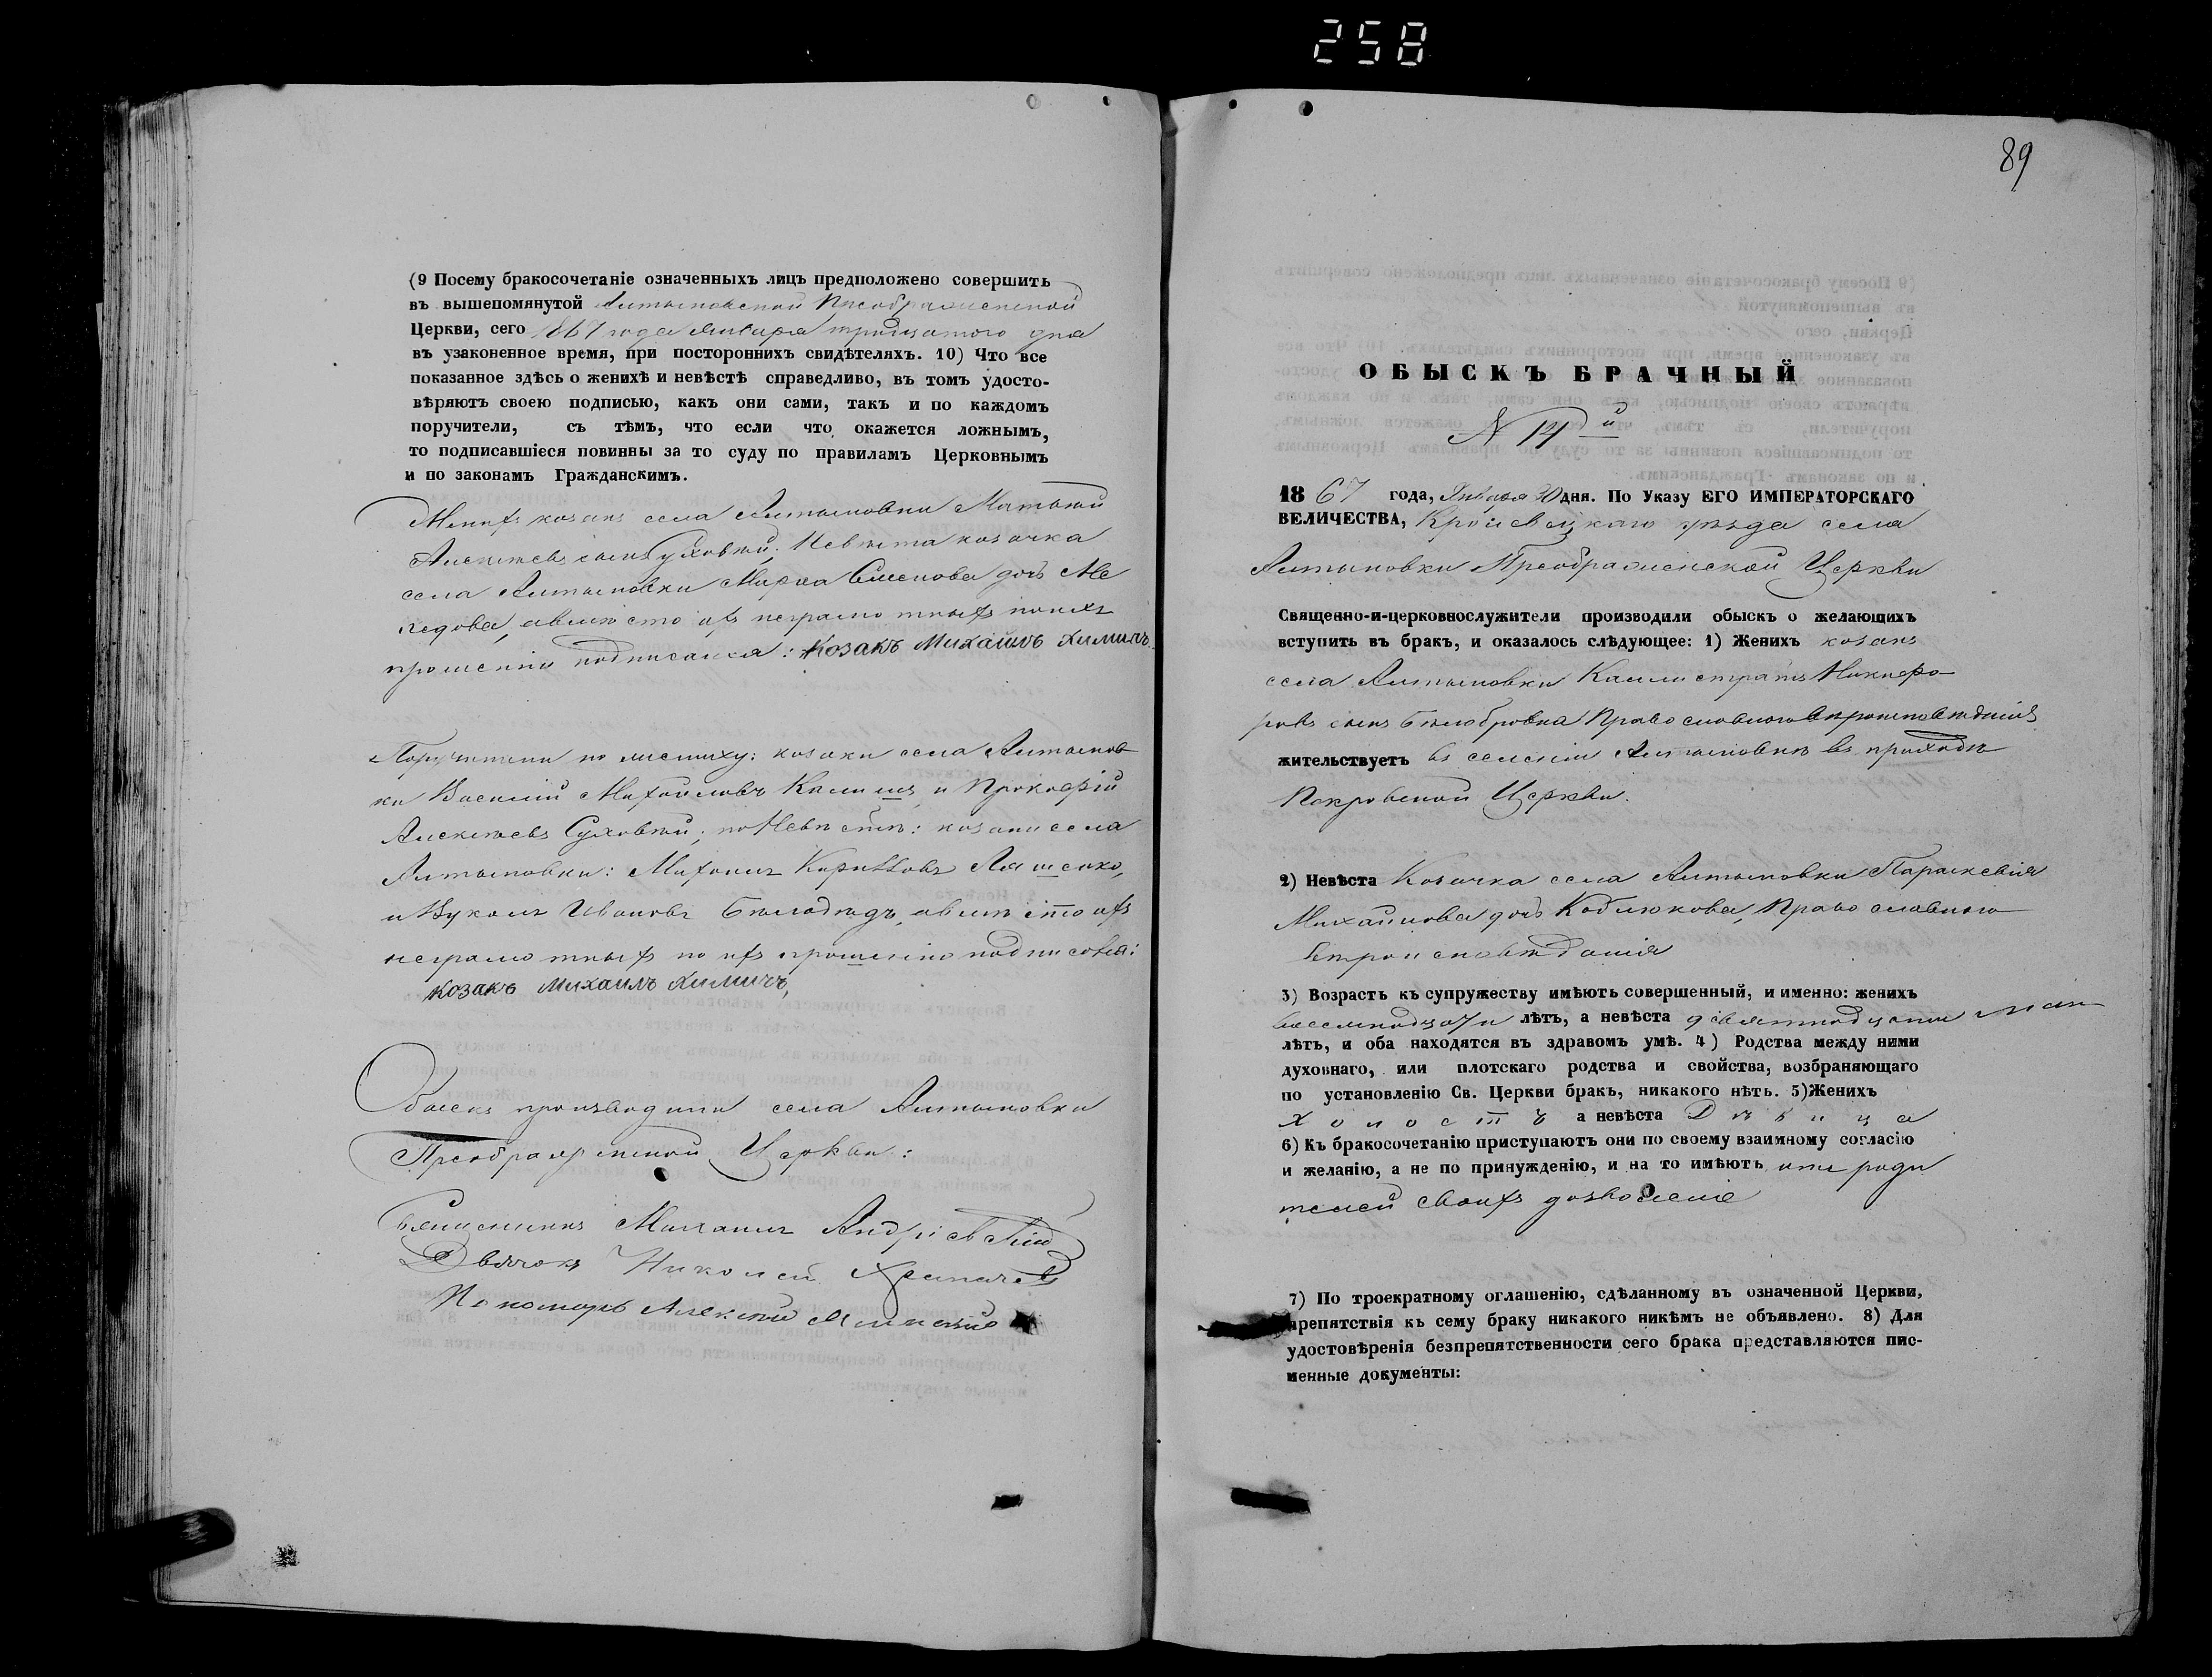 258
(9 Посему бракосочетаніе означенныхъ лицъ предположено совершить
въ вышепомянутой Алтыновской Преображенской
Церкви, сего 1867 года Января тридцатого дня
въ узаконенное время, при постороннихъ свидѣтеляхъ. 10) Что все
показанное здѣсь о женихѣ и невѣстѣ справедливо, въ томъ удосто-
вѣряютъ своею подписью, какъ они сами, такъ и по каждомъ
поручители, съ тѣмъ, что если что окажется ложнымъ,
то подписавшіеся повинны за то суду по правиламъ Церковнымъ
и по законамъ Гражданскимъ.
козакъ села Алтыновки Матвѣй
Алексѣевъ сынъ Суховѣй; Невѣста козачка
села Алтыновки Марѳа Семенова дочь
а вмѣсто ихъ неграмотныхъ по ихъ
прошенію подписался: Козакъ Михаилъ Химичъ.
Поручители по жениху: козаки села Алтынов
ки Василій Михайловъ и Прокофій
Алексѣевъ Суховѣй; по Невѣстѣ: козаки села
Алтыновки: Михаилъ Кирилловъ Ляшенко,
и Вуколъ Ивановъ Бѣлодѣдъ, а вмѣсто ихъ
неграмотныхъ по ихъ прошенію подписался:
Козакъ Михаилъ Химичъ,
Обыскъ производили села Алтыновки
Преображенской Церкви:
Священникъ Михаилъ Андріевскій
Дьячокъ Николай
Пономарь Алексѣй
89
ОБЫСКЪ БРАЧНЫЙ
N 14й
1867 года, Января 30 дня. По Указу ЕГО ИМПЕРАТОРСКАГО
ВЕЛИЧЕСТВА, Кролевецкаго уѣзда села
Алтыновки Преображенской Церкви
Священно-и-церковнослужители производили обыскъ о желающихъ
вступить въ бракъ, и оказалось слѣдующее: 1) Женихъ козакъ
села Алтыновки Каллистратъ Никифо-
ровъ сынъ Бѣлобровка Православного вѣроисповѣданія
жительствуетъ въ селеніи Алтыновкѣ въ приходѣ
Покровской Церкви.
2) Невѣста Козачка села Алтыновки Параскевія
Михайлова дочь Коблюкова, Православного
вѣроисповѣданія
3) Возрастъ къ супружеству имѣютъ совершенный, и именно: женихъ
лѣтъ, а невѣста девятнадцати лѣтъ
лѣтъ, и оба находятся въ здравомъ умѣ. 4) Родства между ними
духовнаго, или плотскаго родства и свойства, возбраняющаго
по установленію Св. Церкви бракъ, никакого нѣтъ. 5)Женихъ
Холостъ а невѣста Дѣвица
6) Къ бракосочетанію приступаютъ они по своему взаимному согласію
и желанію, а не по принужденію, и на то имѣютъ отъ роди
телей своихъ дозволеніе
7) По троекратному оглашенію, сдѣланному въ означенной Церкви,
препятствія къ сему браку никакого никѣмъ не объявлено. 8) Для
удостовѣренія безпрепятственности сего брака представляются пис-
менные документы: